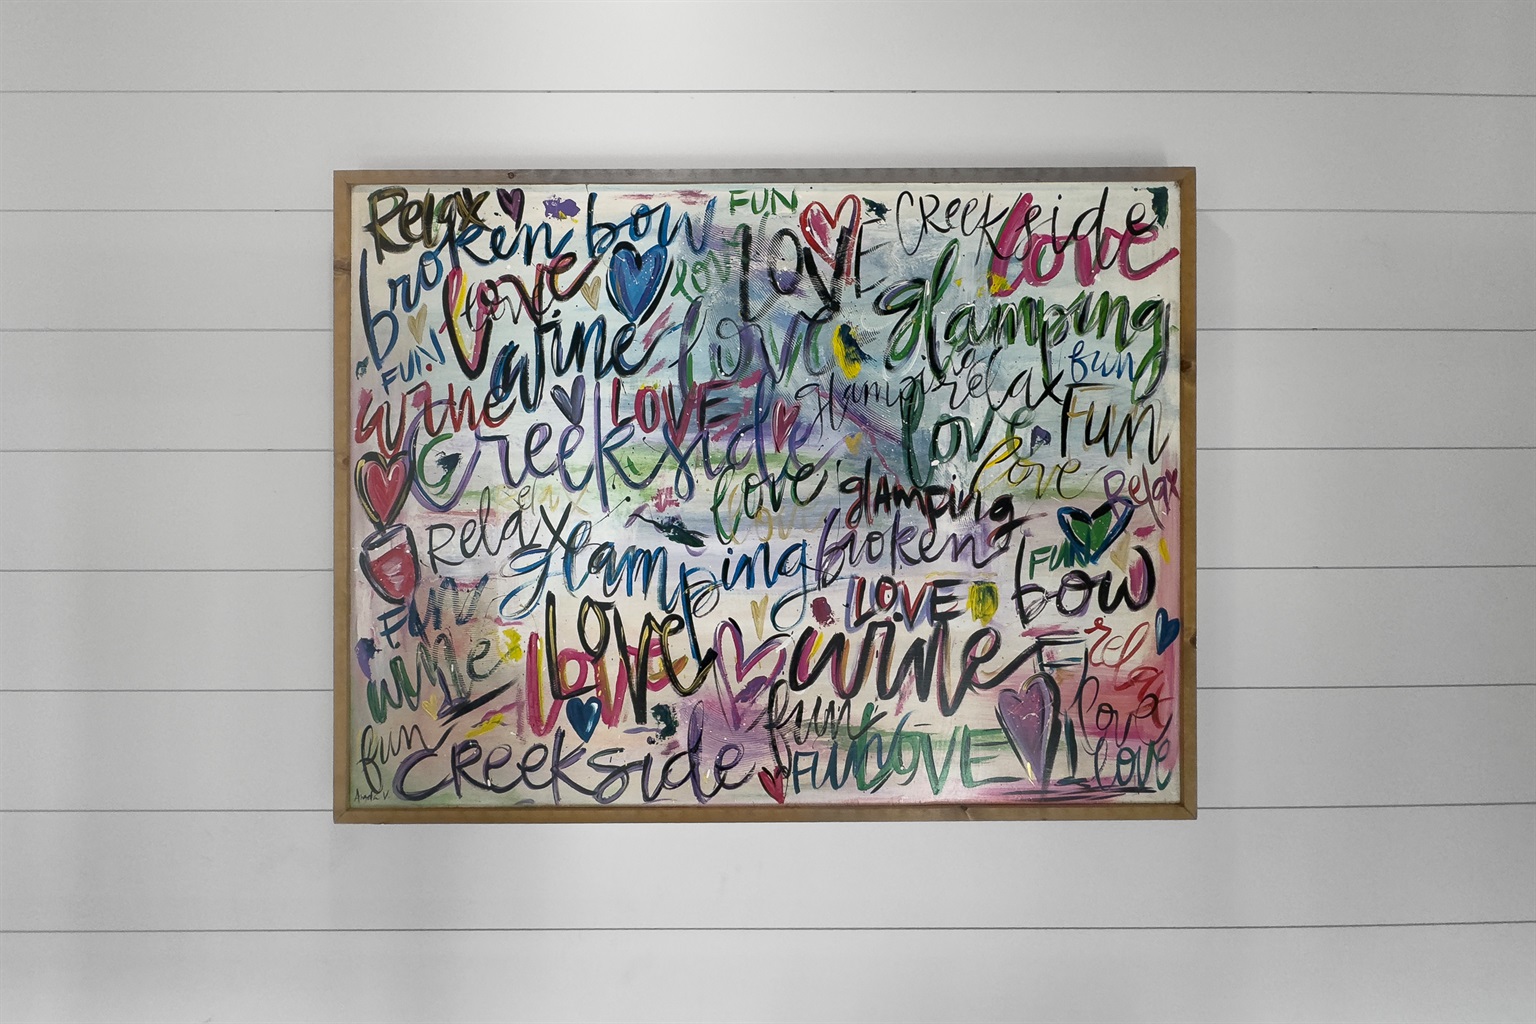 Relax
broken bow
FUN
LOVE
Creekside
love
love
lov
glamping
FUN
wine
love
glamping
relax
fun
wine
LOVE
love
Fun
Creekside
love
love
glamping
Relax
relax
love
Relax
glamping
broken
FUN
bow
LOVE
FUN
LOVE
love
wine
relax
wine
love
fun
fun
Creekside
FUN
LOVE
love